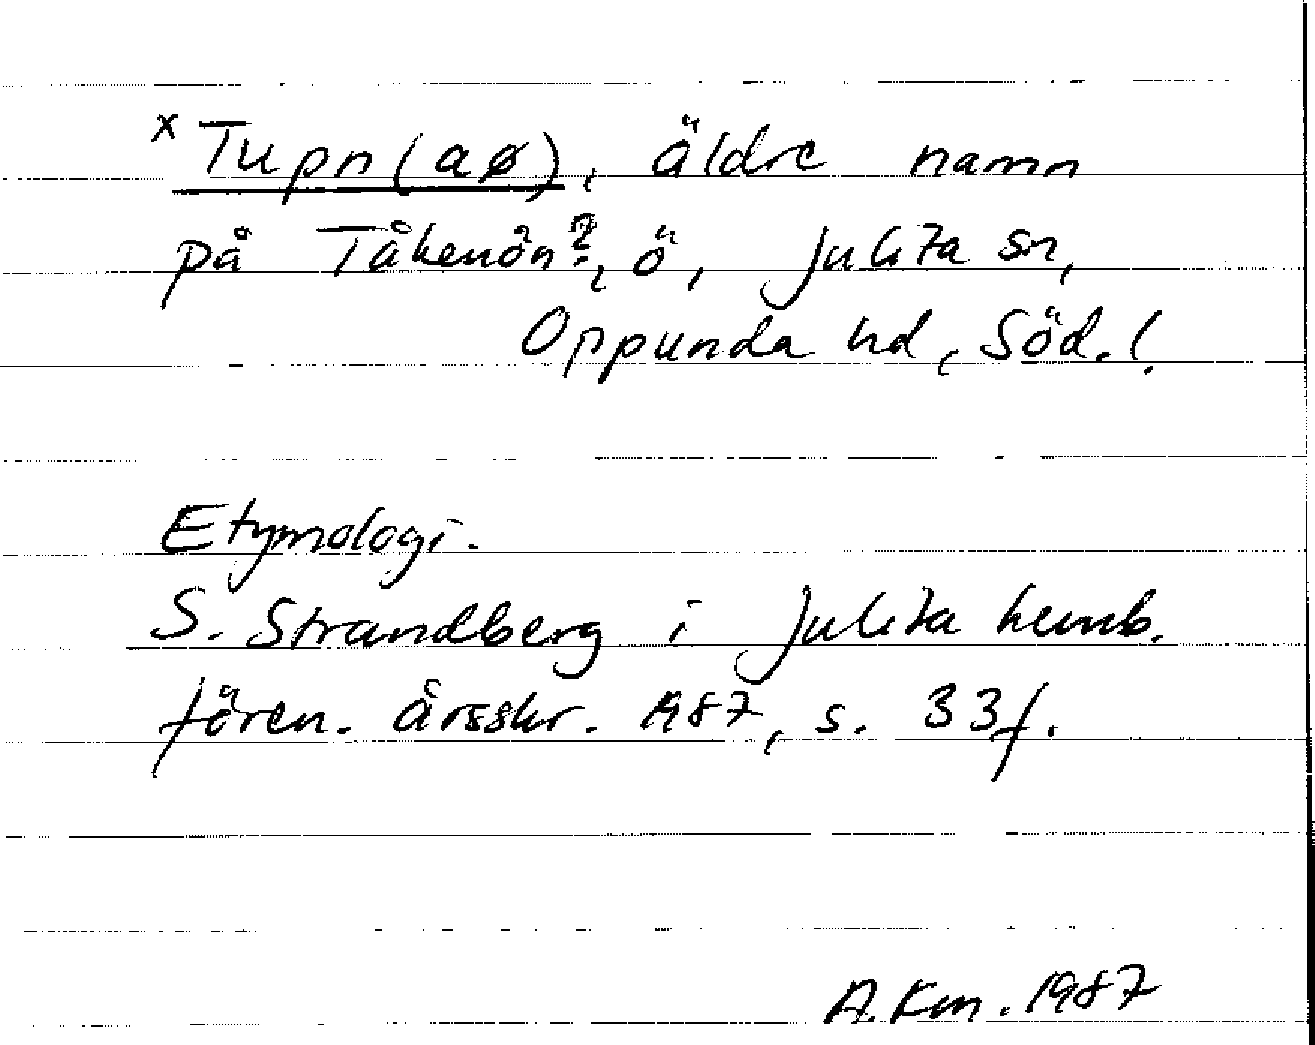 x Tupn(aø), äldre namn
på Tåkenön?, ö, Julita sn,
Oppunda hd, Söd.l.
Etymologi.
S. Strandberg i Julita hemb.
fören. årsskr. 1987, s. 33f.
A. Km. 1987